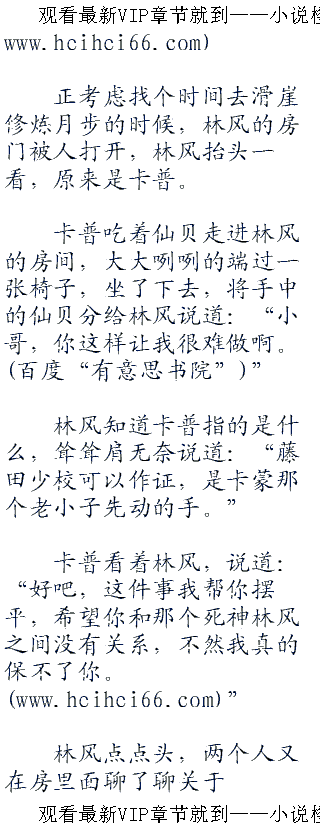 观看最新VIP章节就到——小说楼
www.hcihci66.com)
正考虑找个时间去滑崖
修炼月步的时候，林风的房
门被人打开，林风抬头一
看，原来是卡普。
卡普吃着仙贝走进林风
的房间，大大咧咧的端过一
张椅子，坐了下去，将手中
的仙贝分给林风说道：“小
哥，你这样让我很难做啊。
(百度“有意思书院”)”
林风知道卡普指的是什
么，耸耸肩无奈说道：“藤
田少校可以作证，是卡蒙那
个老小子先动的手。”
卡普看着林风，说道：
“好吧，这件事我帮你摆
平，希望你和那个死神林风
之间没有关系，不然我真的
保不了你。
(www.hcihci66.com)”
林风点点头，两个人又
在房里面聊了聊关于
观看最新VIP章节就到——小说